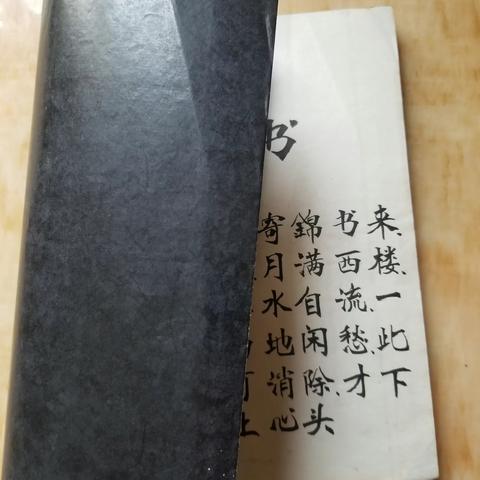 书
寄錦书来、
月满西楼、
水自流、一
地闲愁、此
消除、才下
心头